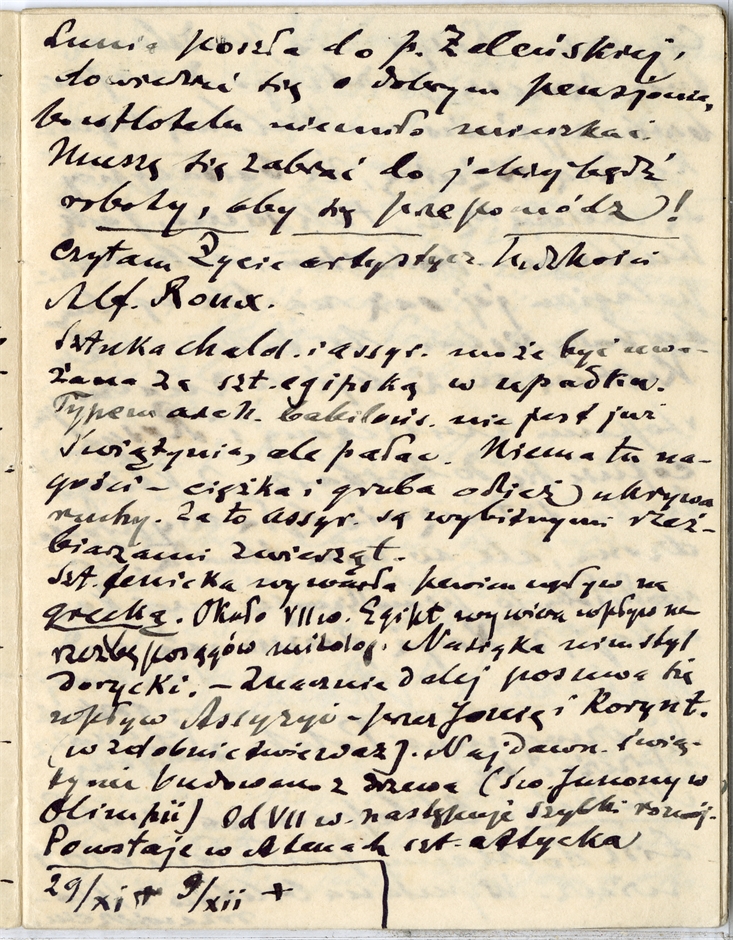 Lunia poszła do p. Zeleńskiej,
dowiedzieć się o dobrym pensjonacie,
bo w Hotelu niemiło mieszkać.
Muszę się zabrać do jakiejbądź
roboty, aby się przepomódz!
Czytam Życie artystycz. ludzkości
Alf. Roux.
Sztuka chald. i assyr. może być uwa-
żana za szt. egipską w upadku.
Typem arch. babiloń. nie jest już
świątynia, ale pałac. Niema tu na-
gości – ciężka i gruba odzież ukrywa
ruchy. Za to assyr. są wybitnymi rzeź-
biarzami zwierząt.
Szt. fenicka wywarła pewien wpływ na
grecką. Około VII w. Egipt wywiera wpływ na
rzeźbę posągów mitolog. Nasiąka nim styl
dorycki. – Znacznie dalej posuwa się
wpływ Assyryi – przez Jonię i Korynt.
(w zdobnictwie waz). Najdawn. świą-
tynie budowano z drzewa (św. Junony w
Olimpii) Od VII w. następuje szybki rozwój.
Powstaje w Atenach szt. attycka
29/xi + 9/xii +